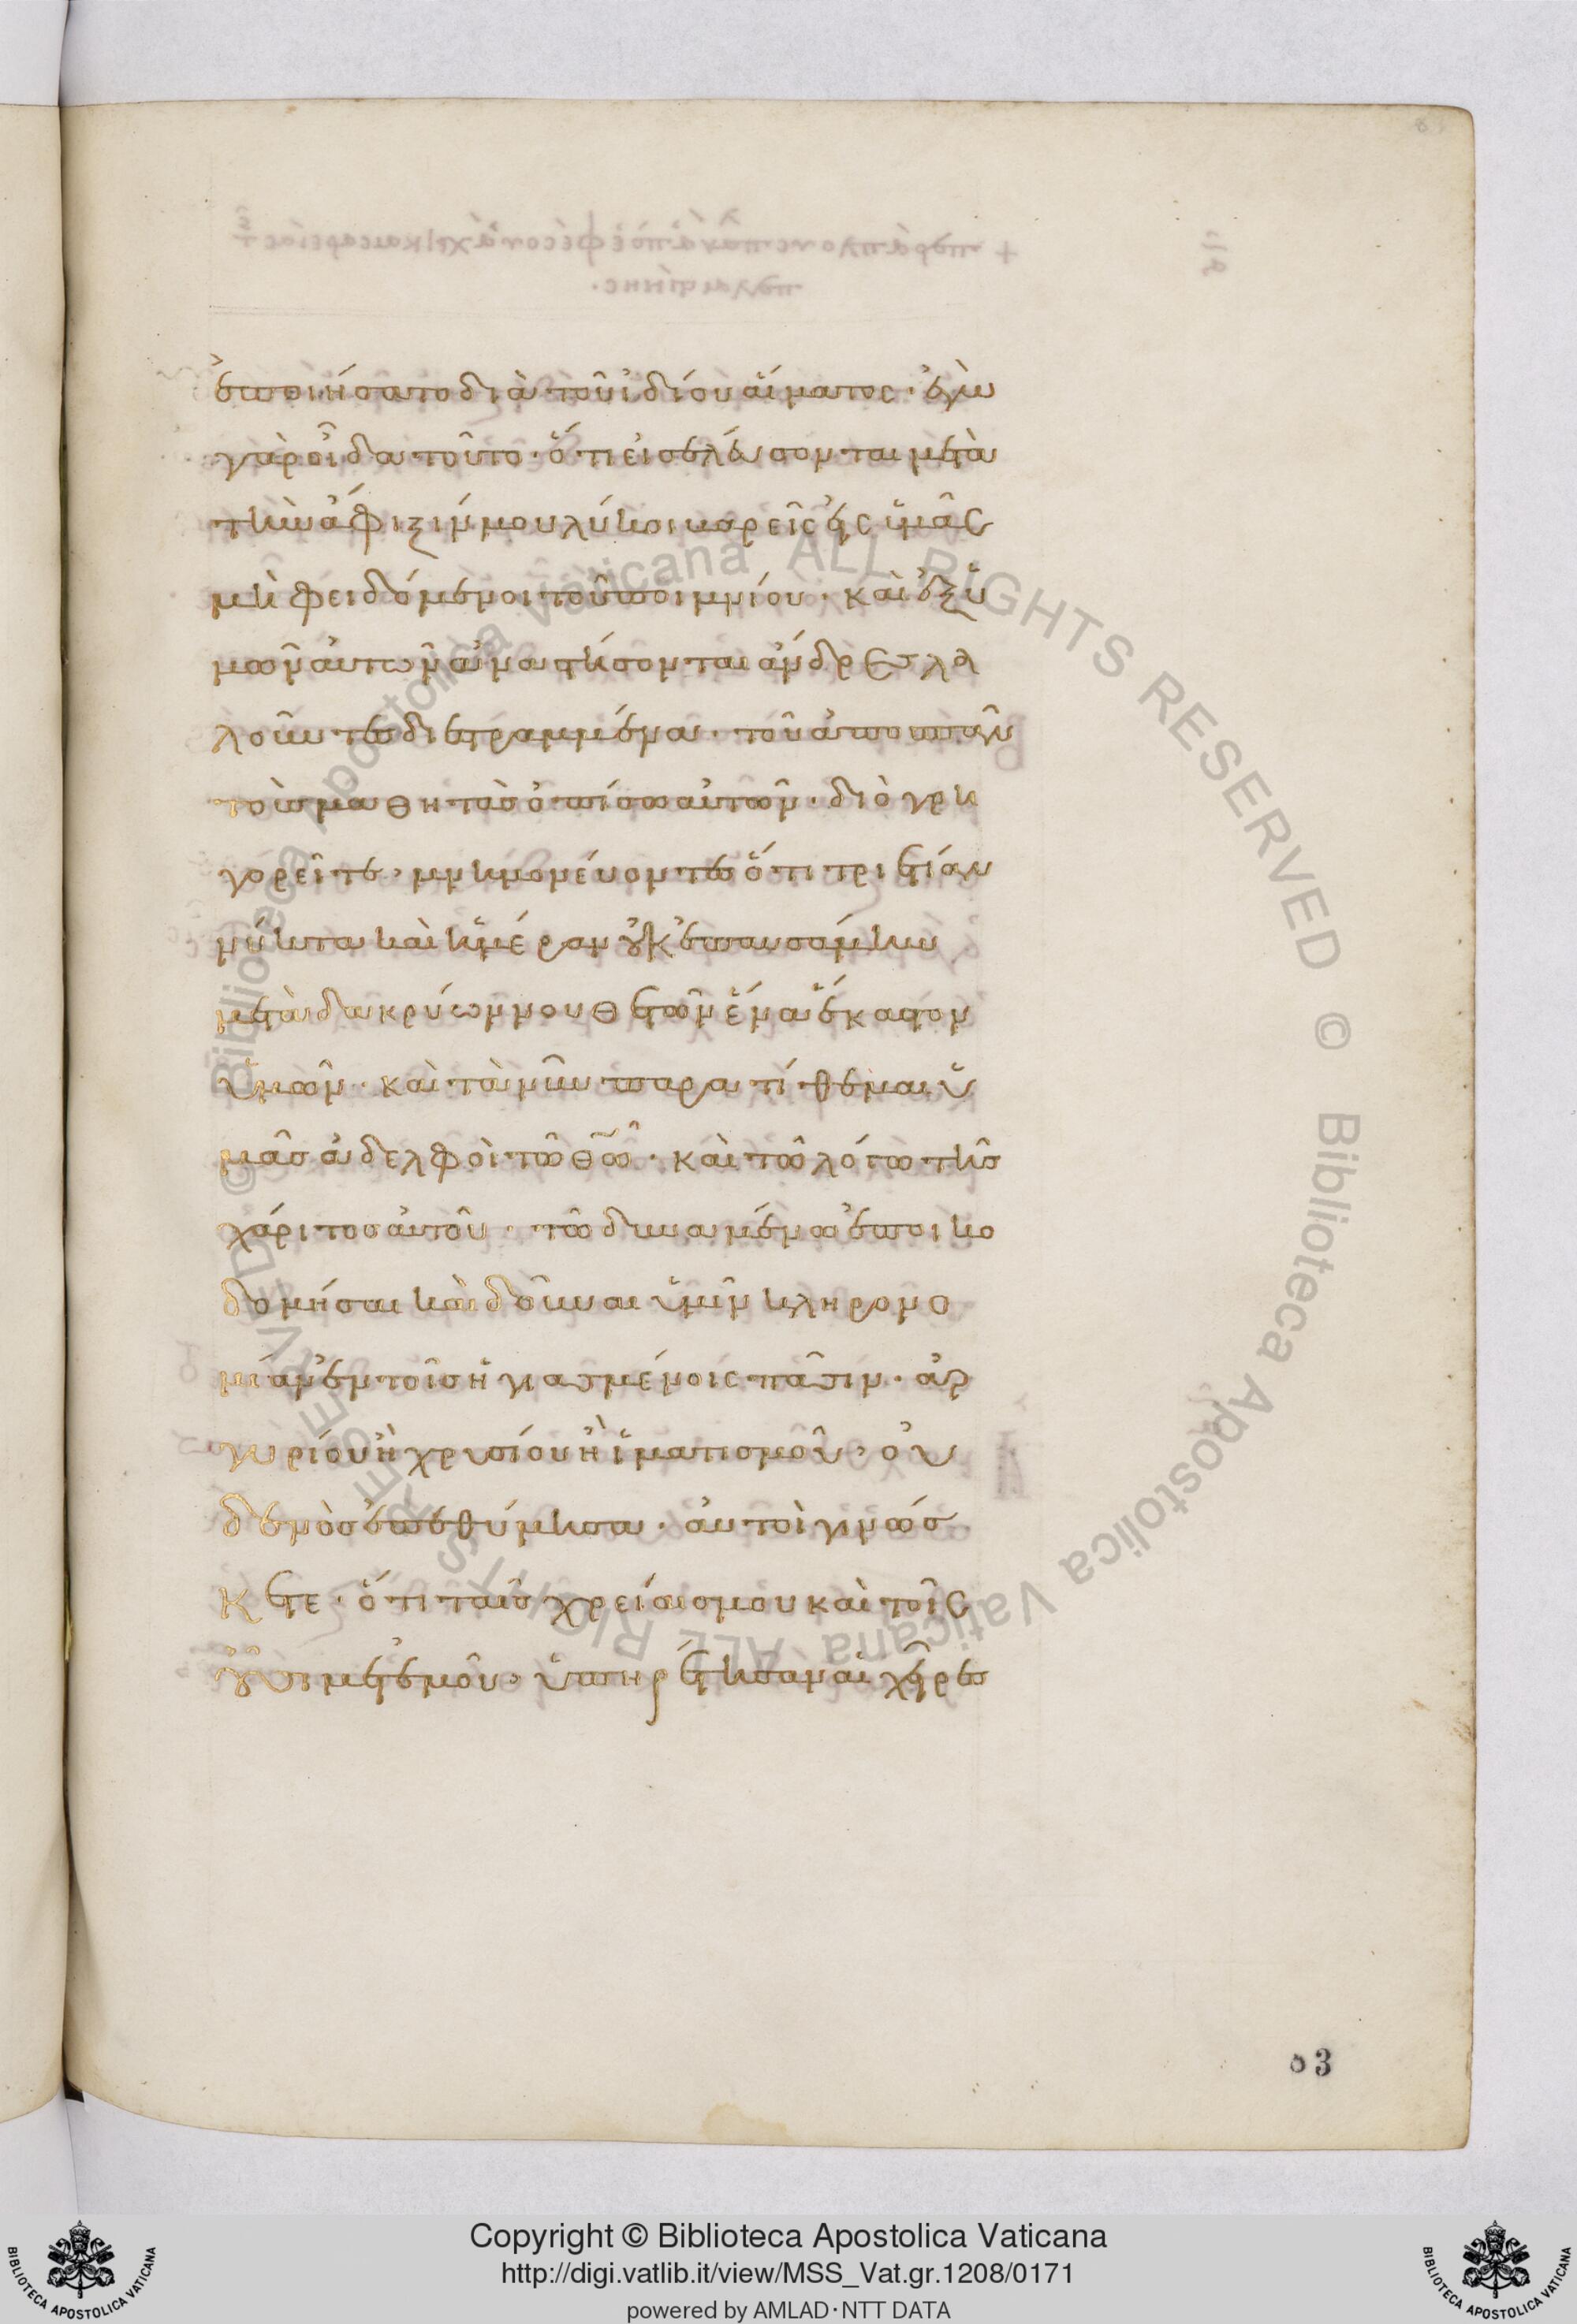 ἐποιήσατο διὰ τοῦ ἰδίου αἵματος· ἐγὼ
γὰρ οἶδα τοῦτο· ὅτι εἰσελεύσονται μετὰ
τὴν ἄφιξίν μου λύκοι βαρεῖς εἰς ὑμᾶς
μὴ φειδόμενοι τοῦ ποιμνίου· καὶ ἐξ ὑ
μῶν αὐτῶν ἀναστήσονται ἄνδρες λα
λοῦντες διεστραμμένα· τοῦ ἀποσπᾶν
τοὺς μαθητὰς ὀπίσω αὐτῶν· διὸ γρη
γορεῖτε, μνημονεύοντες ὅτι τριετίαν
νύκτα καὶ ἡμέραν οὐκ ἐπαυσάμην
μετὰ δακρύων νουθετῶν ἕνα ἕκαστον
ὑμῶν· καὶ τὰ νῦν παρατίθεμαι ὑ
μᾶς ἀδελφοὶ τῶ θῶ· καὶ τῶ λόγω τῆς
χάριτος αὐτοῦ· τῶ δυναμένω ἐποικο
δομήσαι καὶ δοῦναι ὑμῖν κληρονο
μίαν ἐν τοῖς ἡγιασμένοις πᾶσιν· ἀρ
γυρίου ἢ χρυσίου ἢ ἱματισμοῦ, οὐ
δενὸς ἐπεθύμησα· αὐτοὶ γινώσ
κετε· ὅτι ταῖς χρείαις μου καὶ τοῖς
οὖσι μετ' ἐμοῦ, ὑπηρέτησαν αἱ χεῖρες
83
© Biblioteca Apostolica Vaticana ALL RIGHTS RESERVED © Biblioteca Apostolica Vaticana ALL RIGHTS RESERVED
Copyright © Biblioteca Apostolica Vaticana
http://digi.vatlib.it/view/MSS_Vat.gr.1208/0171
powered by AMLAD·NTT DATA
BIBLIOTECA APOSTOLICA VATICANA
BIBLIOTECA APOSTOLICA VATICANA